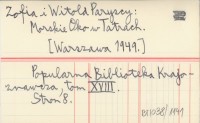 Zofia i Witold Paryscy:
Morskie Oko w Tatrach.
[Warszawa 1949.]
Popularna Biblioteka Krajo-
znawcza, tom XVIII.
Stron 8.